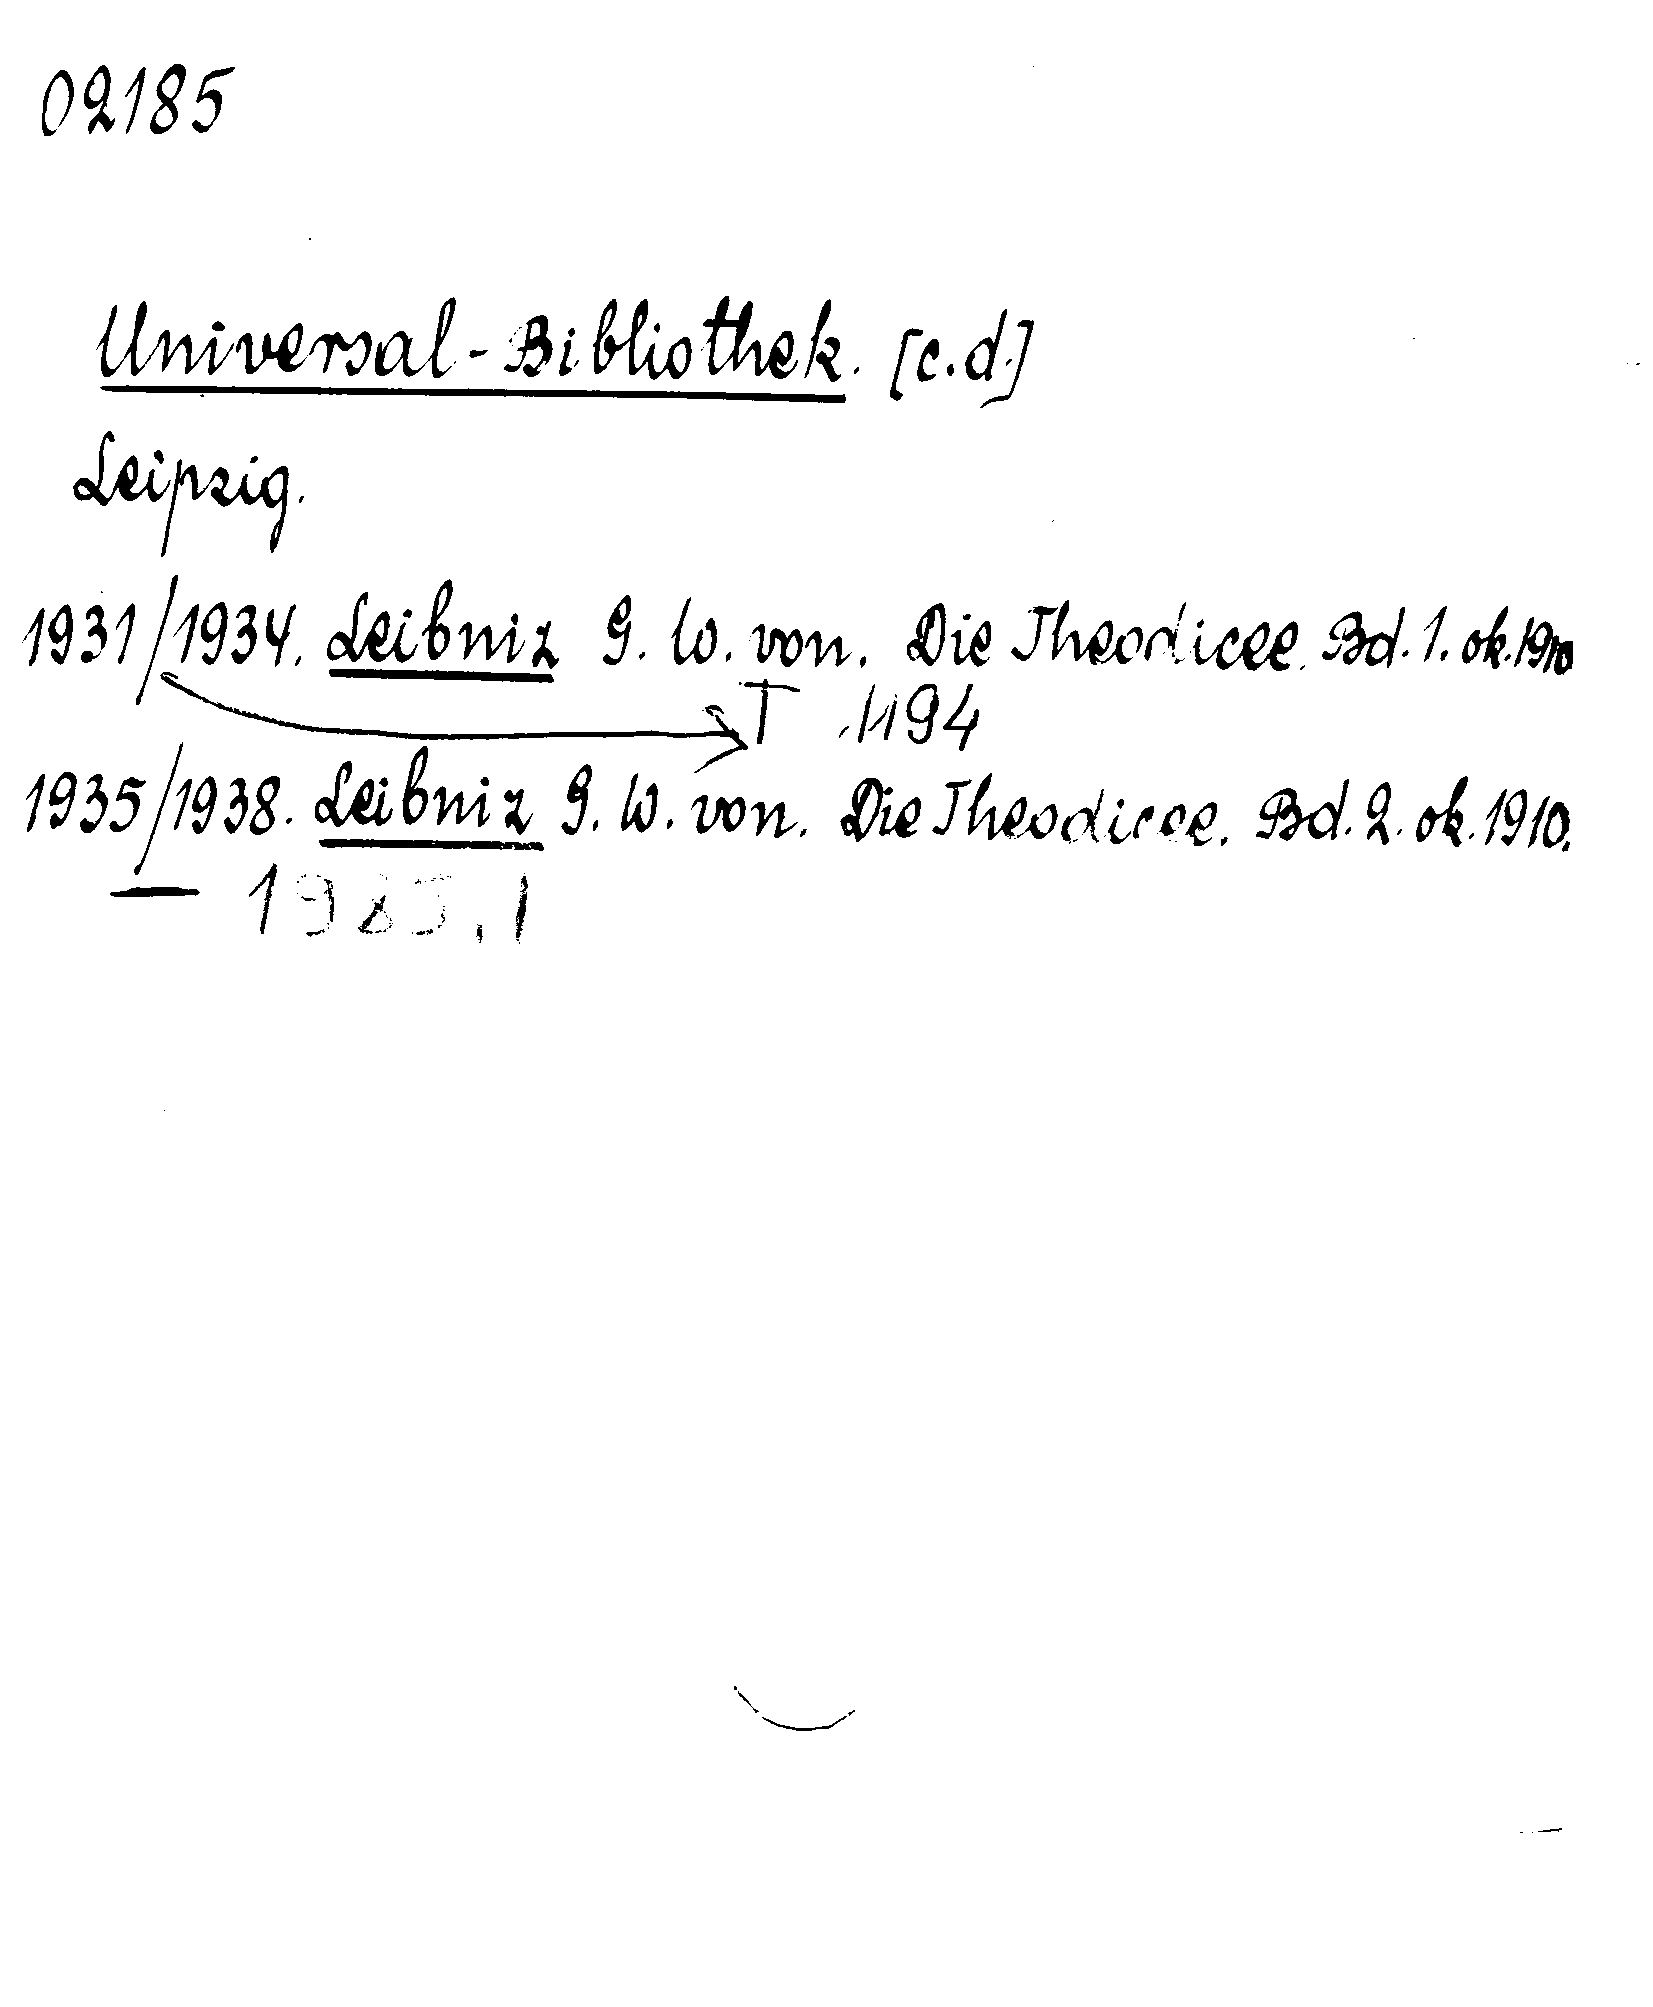 02185
Universal-Bibliothek. [c.d.]
Leipzig.
1931/1934. Leibniz G. W. von. Die Theodicee. Bd. 1. ok. 1910
T 1194
1935/1938. Leibniz G. W. von. Die Theodicee. Bd. 2. ok. 1910.
— 1985. 1